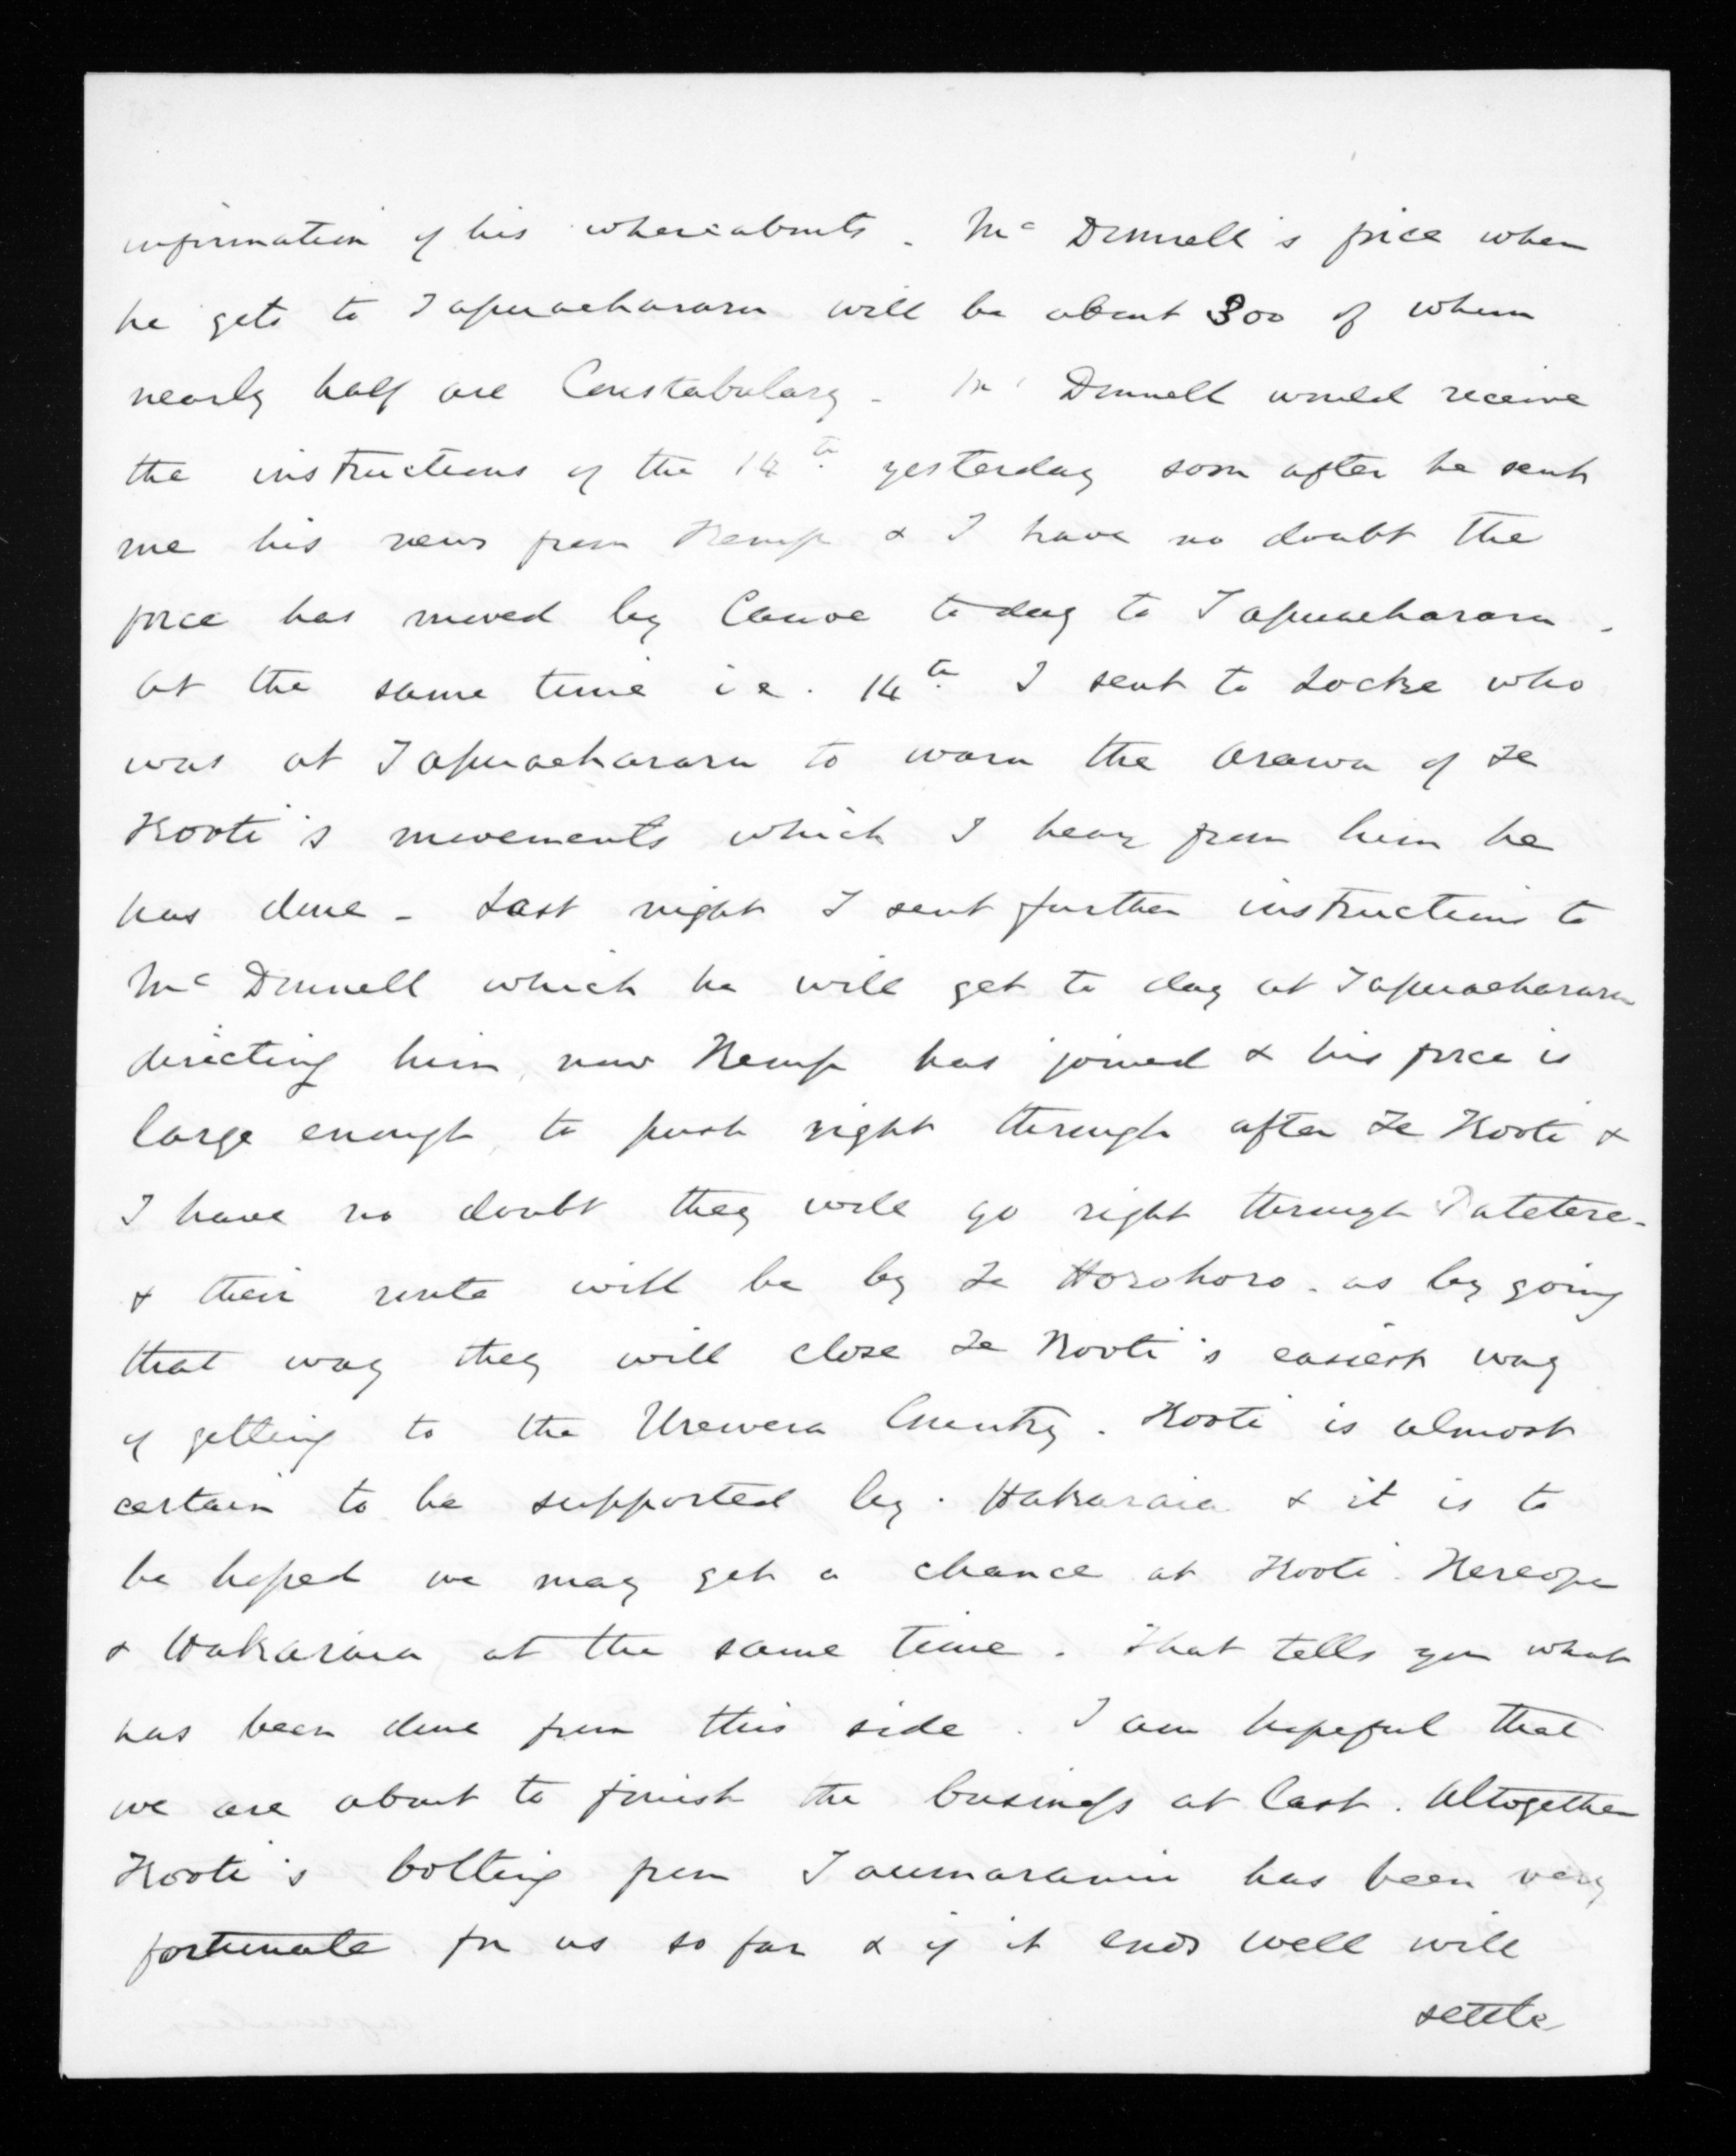 information of his whereabouts. McDonnell's force when
he gets to Tapuaeharuru will be about 300 of whom
nearly half are Constabulary - McDonnell would receive
the instructions of the 14th yesterday soon after he sent
me his news from Kemp & I have no doubt the
force has moved by Canoe to day to Tapuaeharuru.
At the same time i.e. 14th I sent to Locke who
was at Tapuaeharuru to warn the Arawa of Te
Kooti's movements which I hear from him he
has done - Last night I sent further instructions to
McDonnell which he will get to day at Tapuaeharuru
directing him, now Kemp has joined & his force is
large enough, to push right through after Te Kooti &
I have no doubt they will go right through Patetere -
& their route will be by Te Horohoro - as by going
that way they will close Te Kooti's easiest way
of getting to the Urewera Country. Kooti is almost
certain to be supported by Hakaraia & it is to
be hoped we may get a chance at Kooti Kereopa
& Hakaraia at the same time. That tells you what
has been done from this side. I am hopeful that
we are about to finish the business at last. Altogether
Kooti's bolting from Taumarunui has been very
fortunate for us so far & if it ends well will
settle